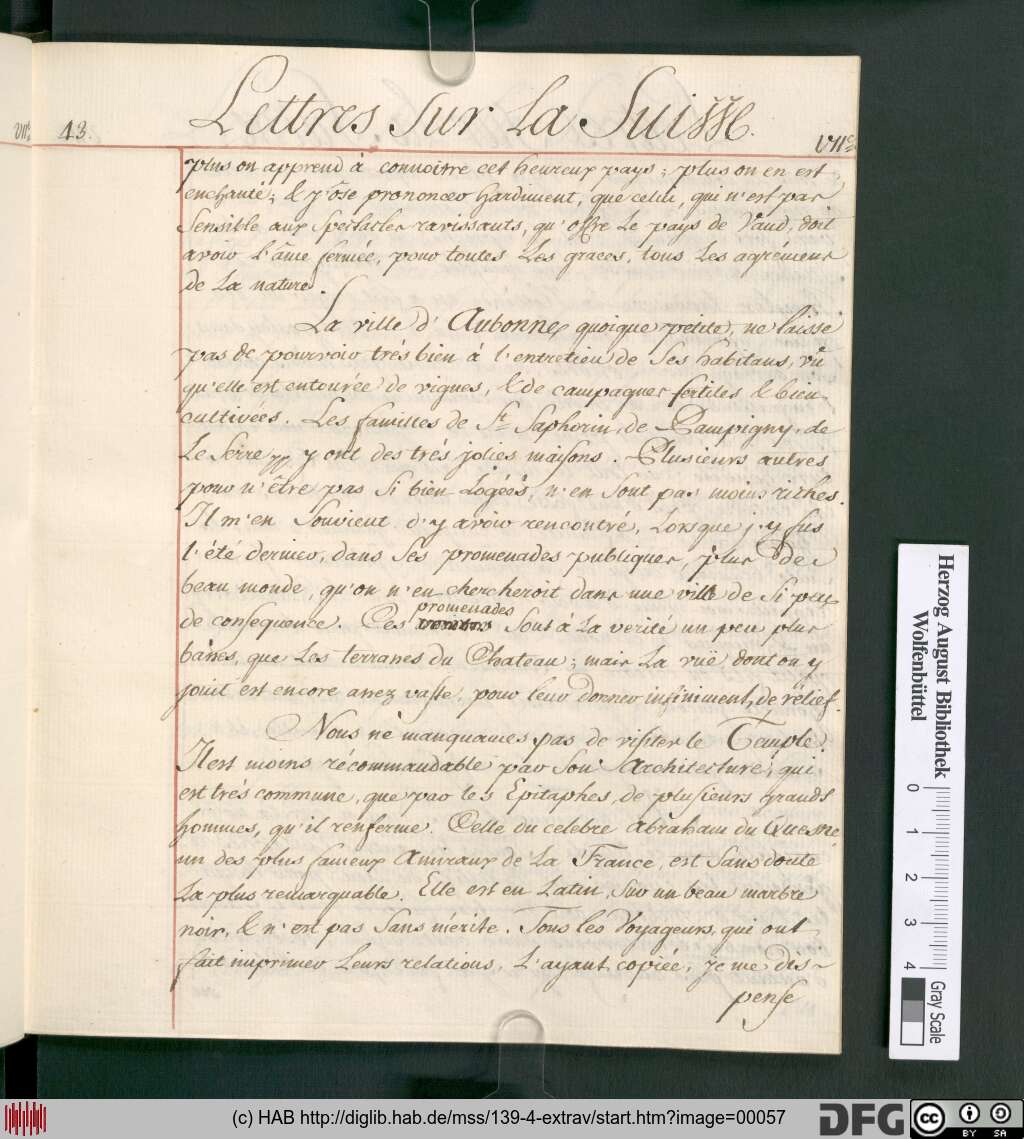 VII.e 43. Lettres sur la Suisse. VII.e
plus on apprend à connoitre cet heureux pays; plus on en est
enchanté; & j'ôse prononcer hardiment, que celui, qui n'est pas
sensible aux spectacles ravissants, qu'offre le pays de Vaud, doit
avoir l'âme fermée, pour toutes les graces, tous les agrémens
de la nature.
La ville d'Aubonne, quoique petite, ne laisse
pas de pourvoir très bien à l'entretien de ses habitans, vû
qu'elle est entourée de vignes, & de campagnes fertiles & bien
cultivées. Les familles de St. Saphorin, de Pampigny, de
le Serre pp. y ont des très jolies maisons. Plusieurs autres
pour n'être pas si bien logées, n'en sont pas moins riches.
Il m'en souvient d'y avoir rencontré, lorsque j'y fus
l'été dernier, dans ses promenades publiques, plus de
beau monde, qu'on n'en chercheroit dans une ville de si peu
de consequence. Ces promenades sont à la verité un peu plus
basses, que les terrasses du Chateau; mais la vuë dont on y
jouit est encore assez vaste, pour leur donner infiniment de rélief.
Nous ne manquames pas de visiter le Temple.
Il est moins récommandable par son Architecture, qui
est très commune, que par les Epitaphes, de plusieurs grands
hommes, qu'il renferme. Celle du celebre Abraham du Quesne
un des plus fameux Amiraux de la France, est sans doute
la plus remarquable. Elle est en Latin, sur un beau marbre
noir, & n'est pas sans mérite. Tous les Voyageurs, qui ont
fait imprimer leurs relations, l'ayant copiée, je me dis-
pense
Herzog August Bibliothek
Wolfenbüttel
0 1 2 3 4
Gray Scale
(c) HAB http://diglib.hab.de/mss/139-4-extrav/start.htm?image=00057
DFG
cc BY SA